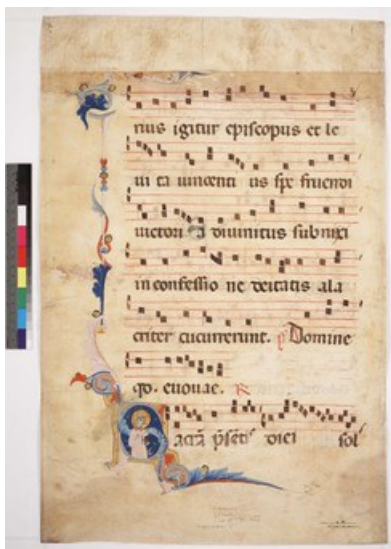 rius igitur episcopus et le
uita uincenti us spe fruendi
uictori a diuinitus subnixi
in confessio ne deitatis ala
criter cucurrerunt. p̄ Domine
qo. euouae. R
Sacrā p̄sentis diei sol